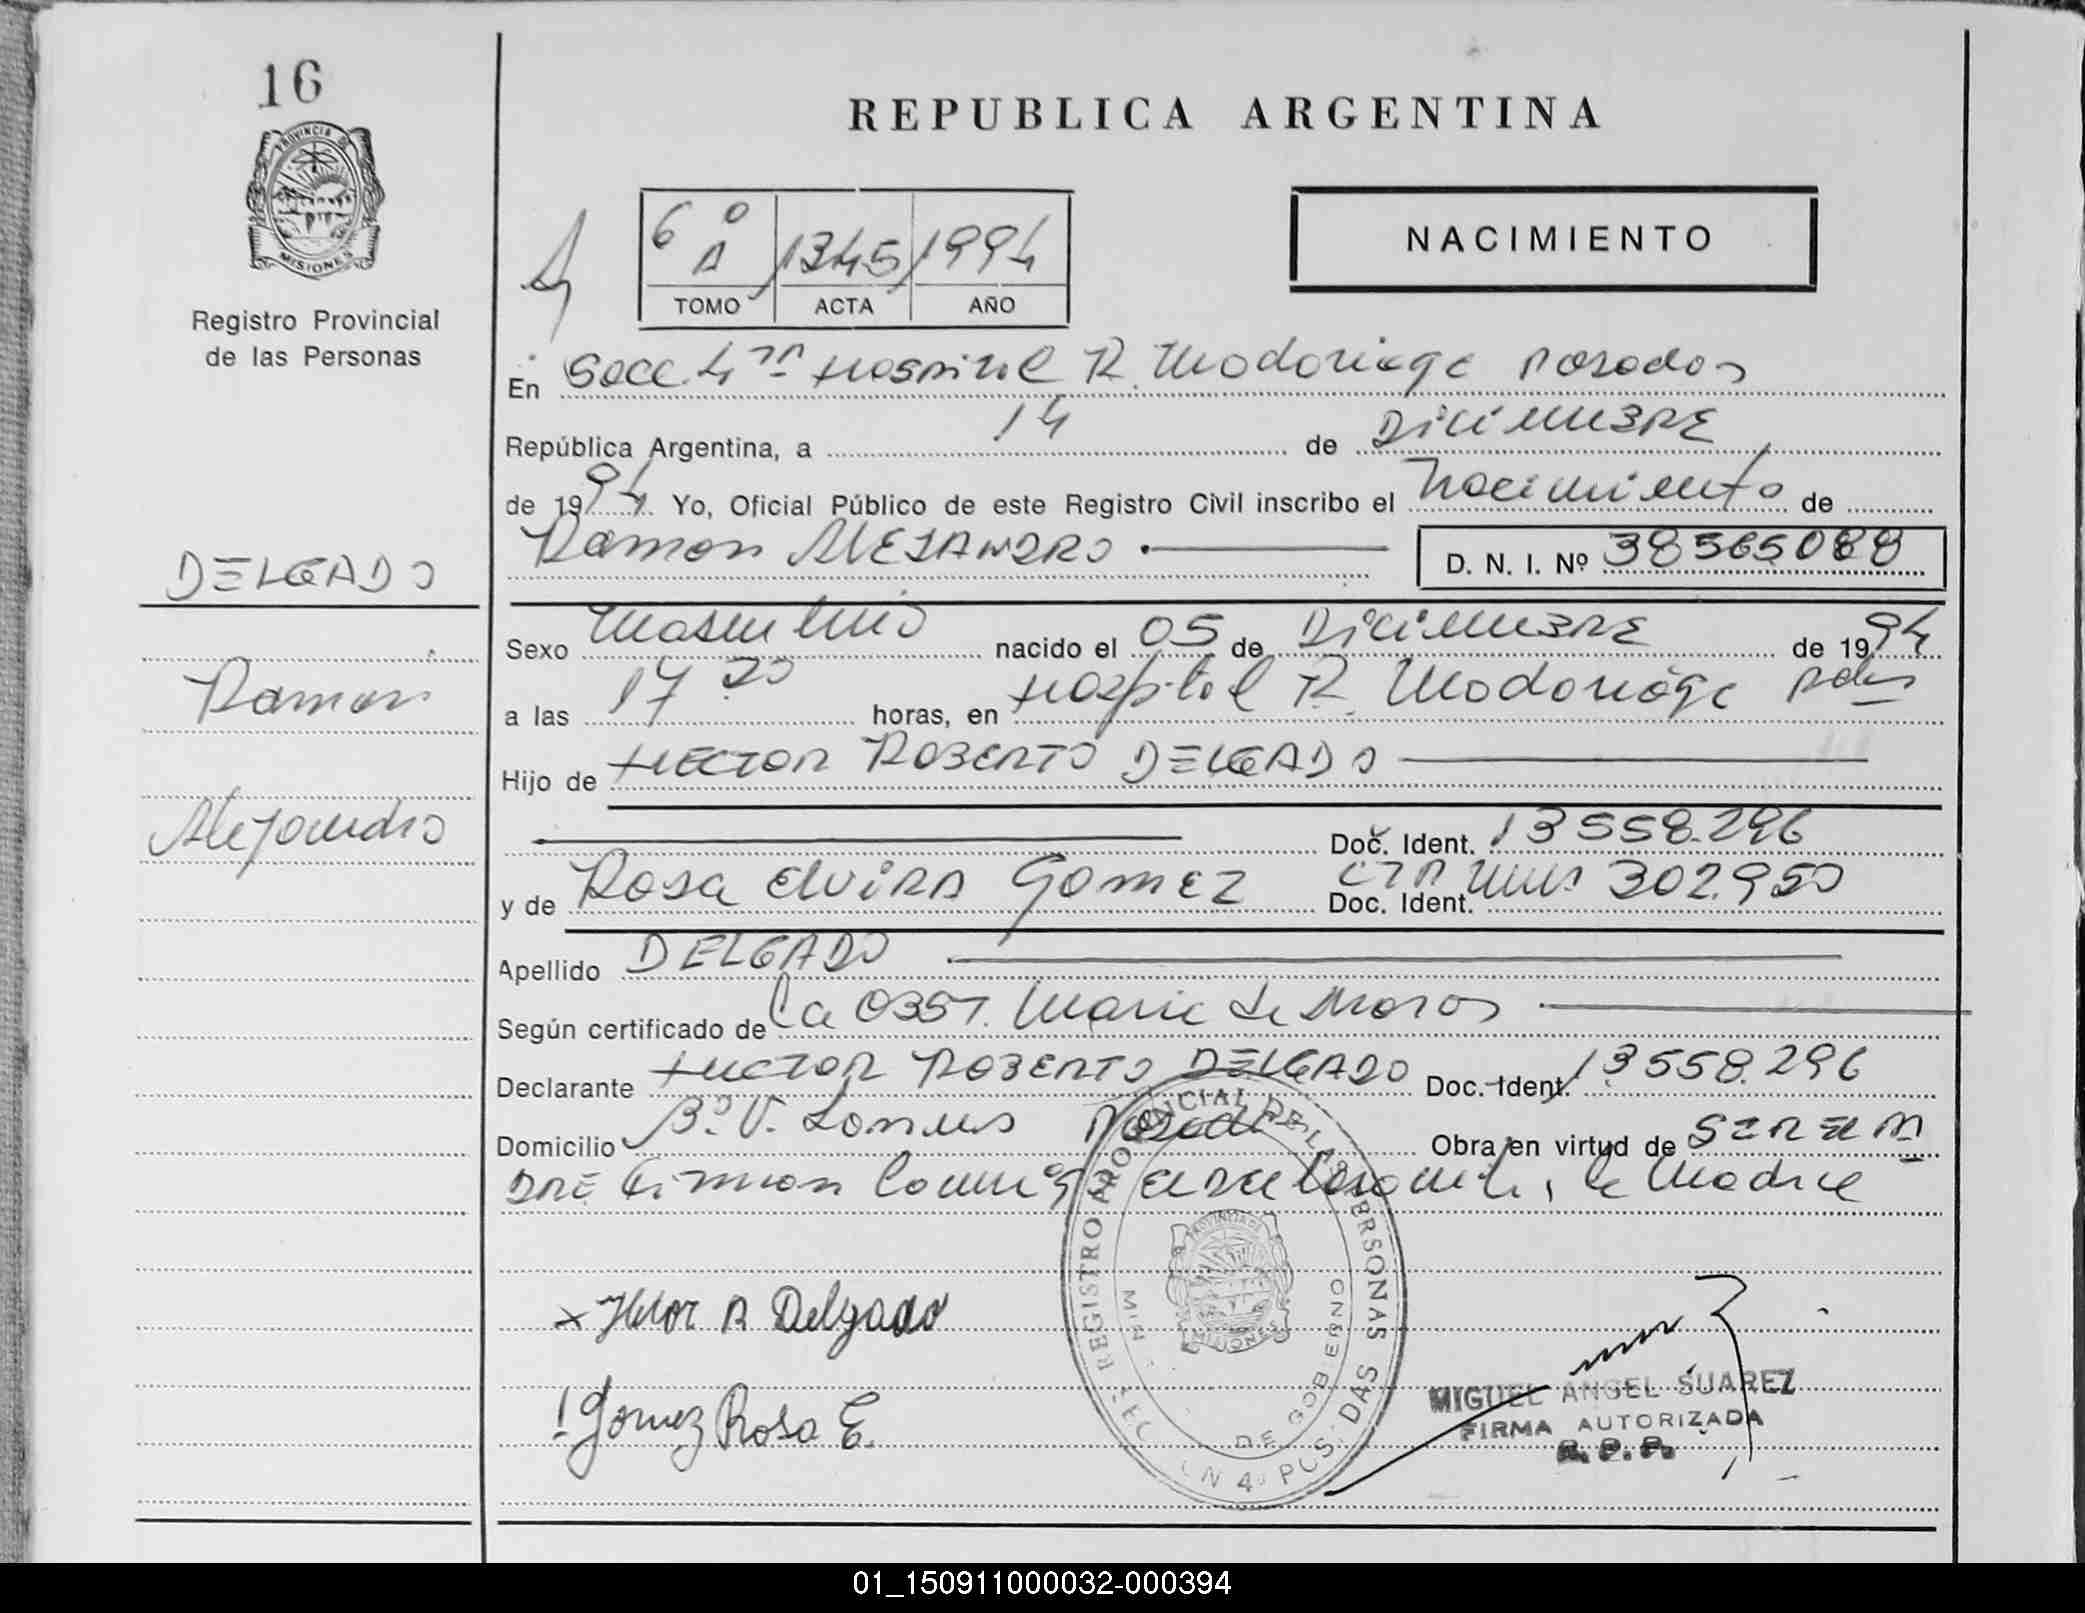 16
PROVINCIA DE
MISIONES
Registro Provincial
de las Personas
REPUBLICA ARGENTINA
NACIMIENTO
6º A 1345 1994
TOMO ACTA AÑO
En Secc. 4ta Hospital R. Madariaga Posadas
República Argentina, a 14 de Diciembre
de 1994. Yo, Oficial Público de este Registro Civil inscribo el Nacimiento de
Ramon Alejandro D. N. I. Nº 38565088
DELGADO
Ramon
Alejandro
Sexo Masculino nacido el 05 de Diciembre de 1994
a las 17 20 horas, en Hospital R. Madariaga Pdas
Hijo de HECTOR ROBERTO DELGADO
Doc. Ident. 13558.296
y de Rosa Elvira Gomez Doc. Ident. 302.950
Apellido DELGADO
Según certificado de
Declarante HECTOR ROBERTO DELGADO Doc. Ident. 13558.296
Domicilio Bº V. Obra en virtud de SER EL PA
DRE Firman la madre
REGISTRO PROVINCIAL DE LAS PERSONAS
MIN. DE GOBIERNO
POSADAS
PROVINCIA DE
MISIONES
x Hector R Delgado
Gomez Rosa E.
MIGUEL ANGEL SUAREZ
FIRMA AUTORIZADA
R. P. P.
01_150911000032-000394